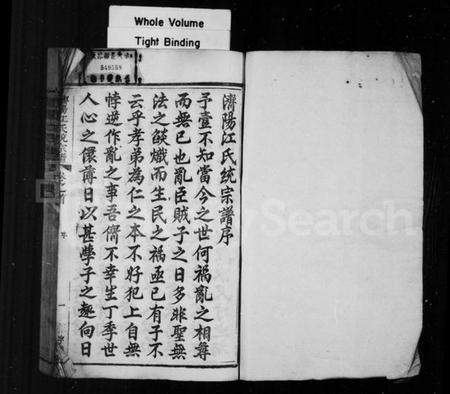 Whole Volume
Tight Binding
549559
濟陽江氏統宗譜序
予壹不知當今之世何禍亂之相尋
而無已也亂臣賊子之日多非聖無
法之燄熾而生民之禍亟已有子不
云乎孝弟為仁之本不好犯上自無
悖逆作亂之事吾儕不幸生丁季世
人心之儇薄日以甚學子之趨向日
Search